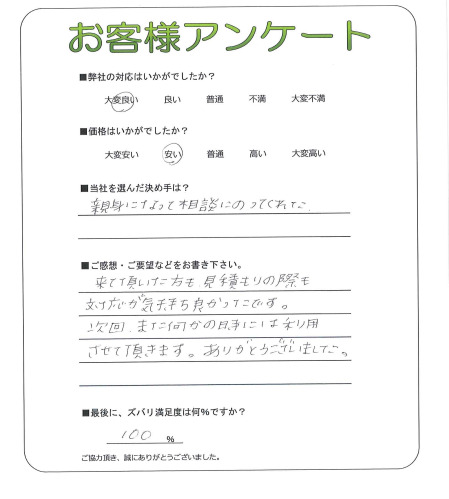 お客様アンケート
■弊社の対応はいかがでしたか?
大変良い 良い 普通 不満 大変不満
■価格はいかがでしたか?
大変安い 安い 普通 高い 大変高い
■当社を選んだ決め手は?
親身になって相談にのってくれた。
■ご感想・ご要望などをお書き下さい。
来て頂いた方も、見積もりの際も
対応が気持ち良かったです。
次回、また何かの時には利用
させて頂きます。ありがとうございました。
■最後に、ズバリ満足度は何%ですか?
100 %
ご協力頂き、誠にありがとうございました。